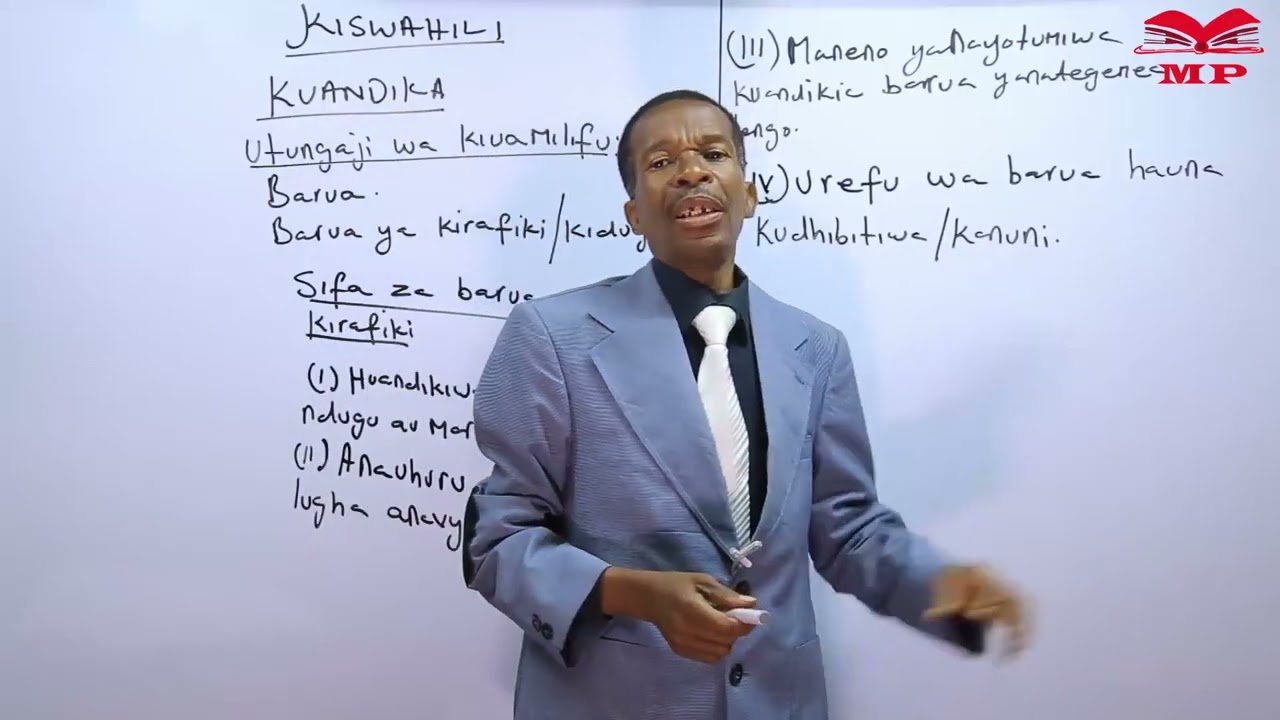 KISWAHILI
KUANDIKA
Utungaji wa kiuamilifu.
Barua.
Barua ya kirafiki/
Sifa za barua
Kirafiki
(I) Huandikiw
ndugu au
(II) Anauhuru
lugha
(III) Maneno yanayotumiwa
kuandikia barua yanategemea
(IV) Urefu wa barua hauna
Kudhibitiwa/kanuni.
MP